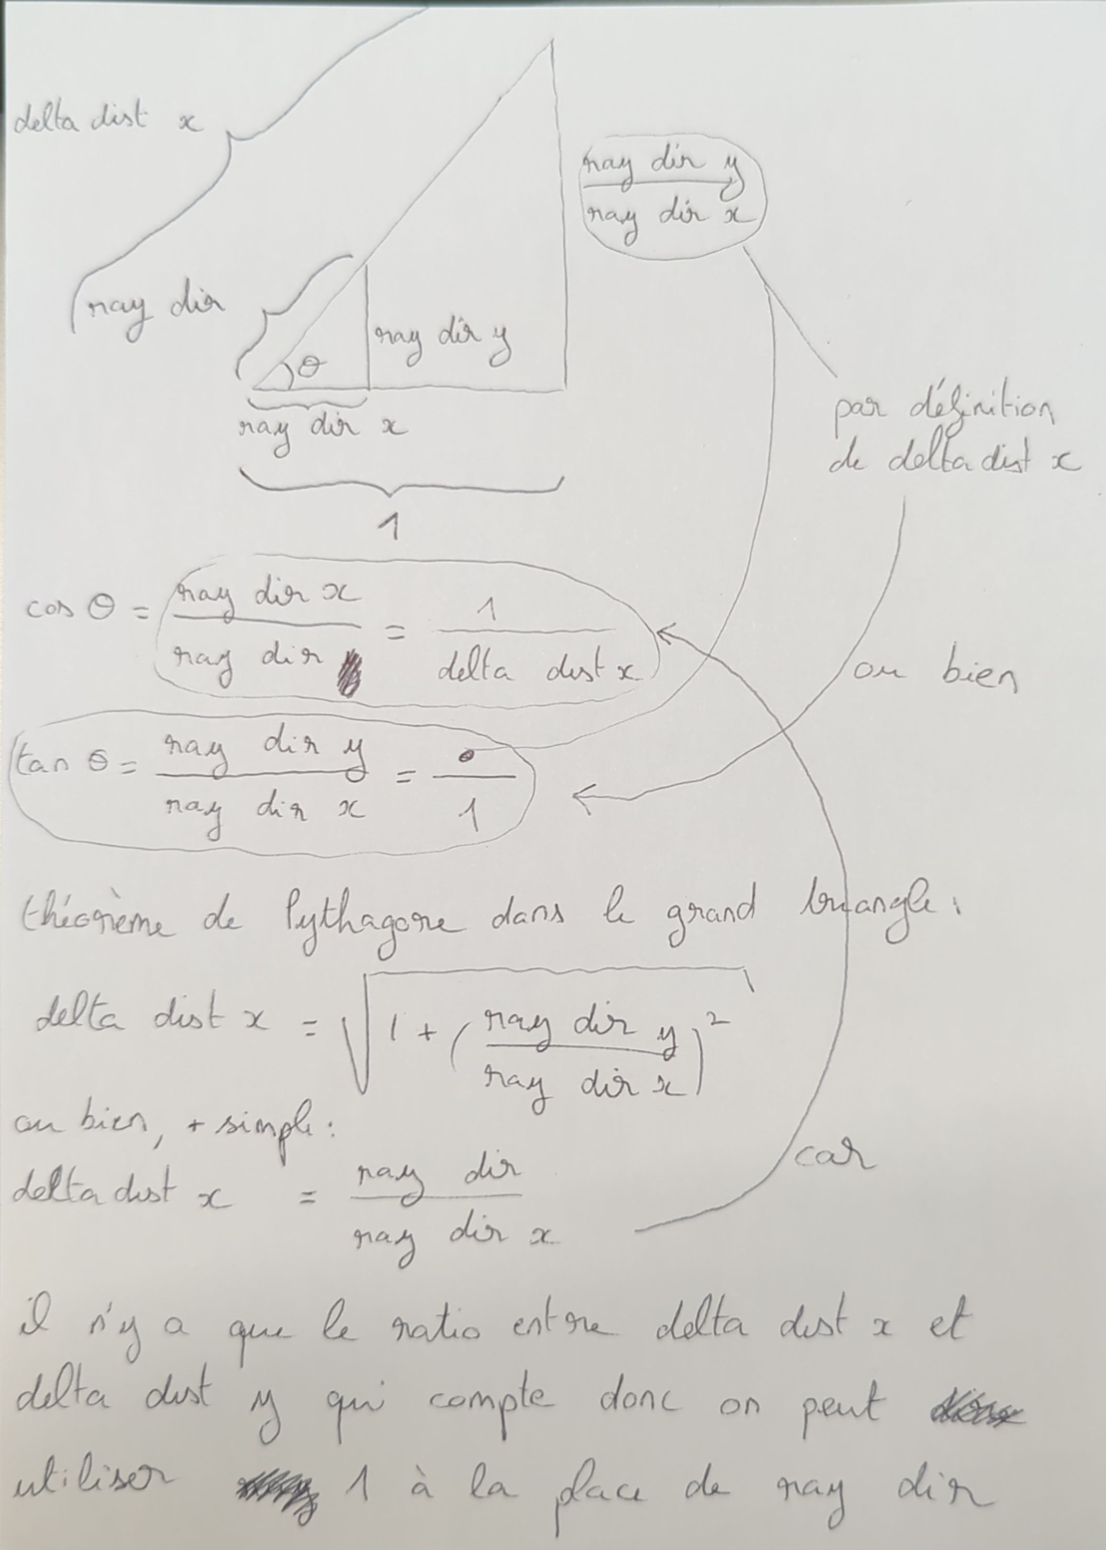 delta dist x
ray dir y
ray dir x
ray dir
ray dir y
θ
ray dir x
par définition
de delta dist x
1
cos θ = ray dir x / ray dir = 1 / delta dist x
ou bien
tan θ = ray dir y / ray dir x = • / 1
théorème de Pythagore dans le grand triangle :
delta dist x = √1 + (ray dir y / ray dir x)²
ou bien, + simple :
car
delta dist x = ray dir / ray dir x
il n'y a que le ratio entre delta dist x et
delta dist y qui compte donc on peut
utiliser 1 à la place de ray dir